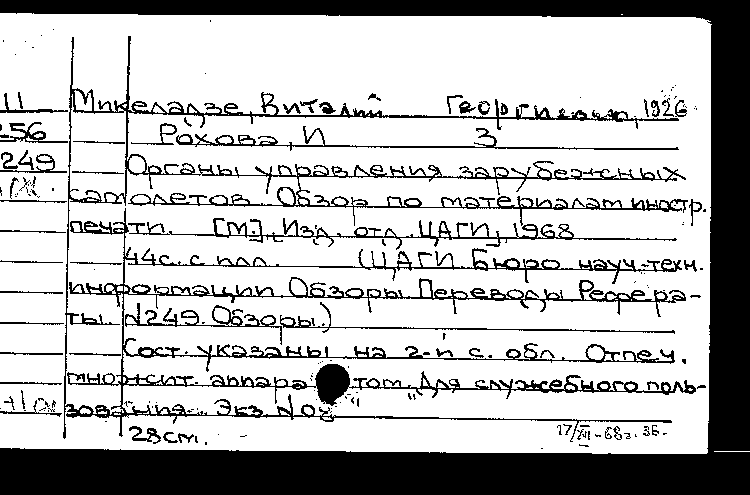 11 Микеладзе, Виталий Георгиевич, 1926
256 Рохова, И З
249 Органы управления зарубежных
самолетов. Обзор по материалам иностр.
печати. [М], [Изд. отд. ЦАГИ], 1968
44с. с илл. (ЦАГИ. Бюро науч.-техн.
информации. Обзоры. Переводы. Рефера-
ты. N249. Обзоры.)
Сост. указаны на 2-й с. обл. Отпеч.
множит. аппаратом. "Для служебного поль-
зования. Экз. N0
28см. 17/XII-68г. 36-